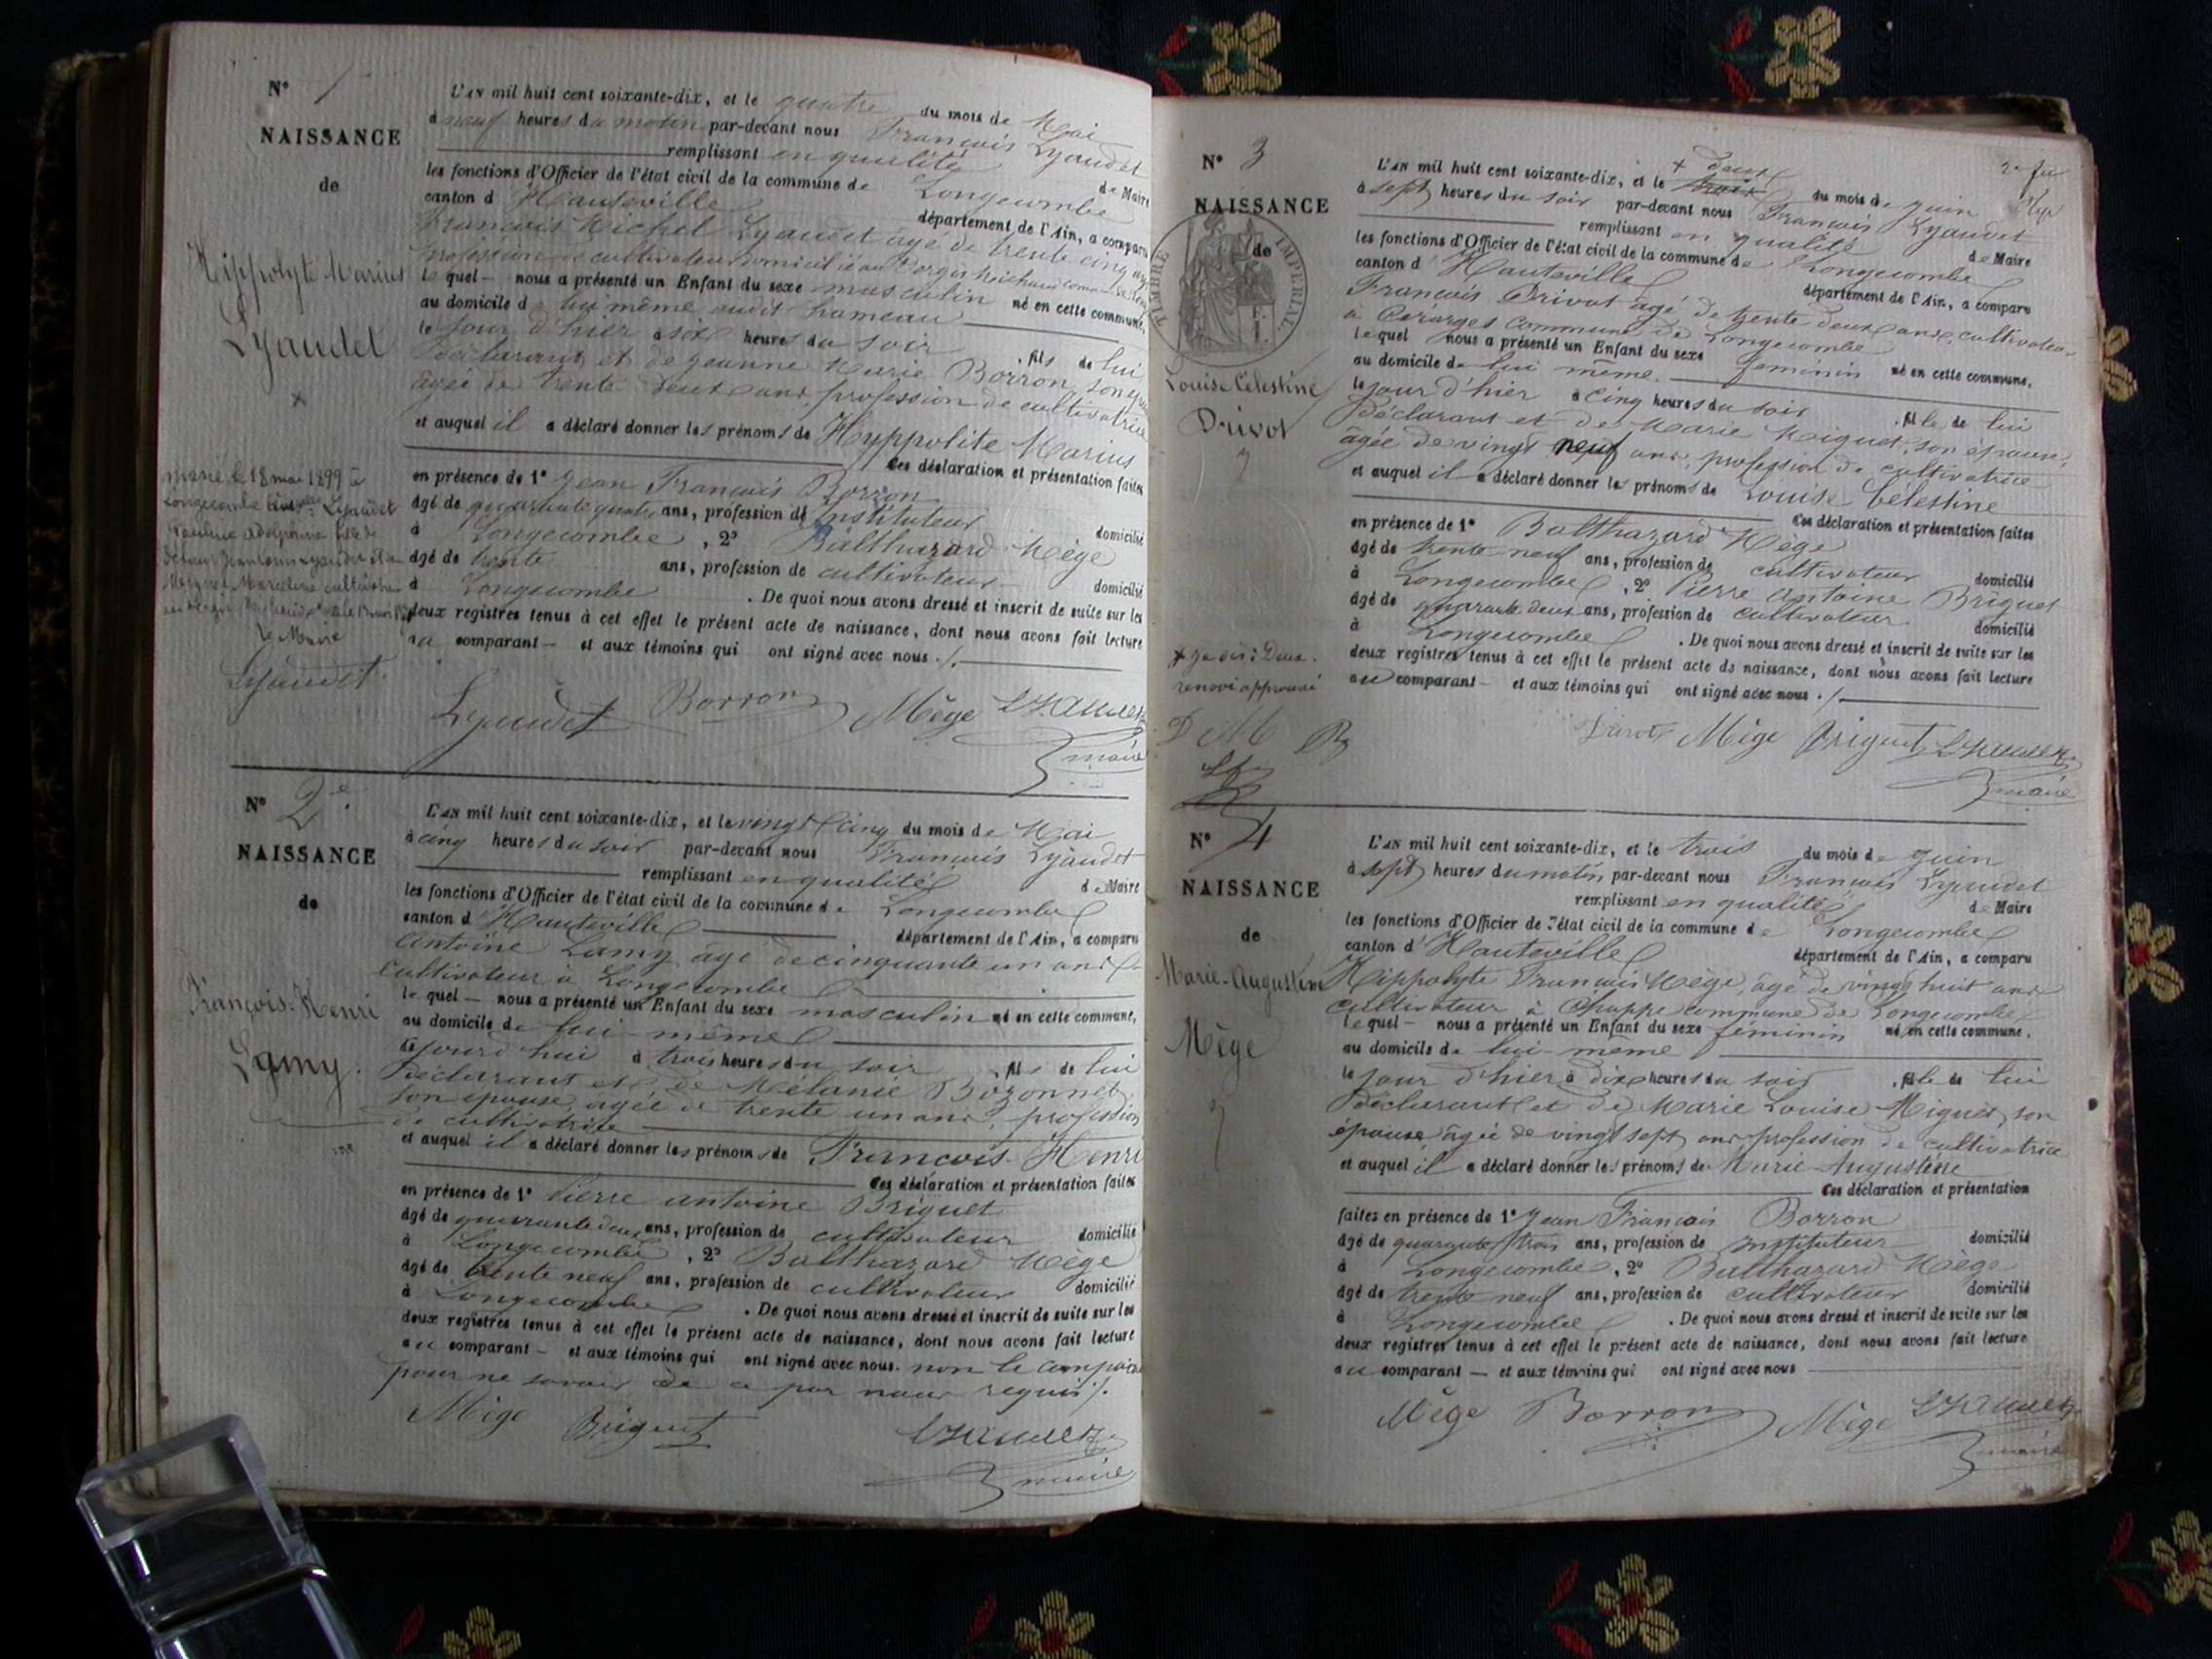 N° 1
NAISSANCE
de
Hippolyte Marius
Lyaudet
marié le 18 mai 1899 à
Longecombe Lyaudet
Adolphine fille de
Marceline
le Maire
Lyaudet
L'AN mil huit cent soixante-dix, et le quatre du mois de Mai
à neuf heures du matin par-devant nous François Lyaudet
remplissant en qualité de Maire
les fonctions d'Officier de l'état civil de la commune de Longecombe
canton d'Hauteville département de l'Ain, a comparu
François Michel Lyaudet âgé de trente cinq ans
profession de cultivateur domicilié au
lequel — nous a présenté un Enfant du sexe masculin né en cette commune,
au domicile de lui même audit hameau
le jour d'hier à six heures du soir, fils de lui
déclarant et de Jeanne Marie Borron, son
âgée de trente deux ans, profession de cultivatrice
et auquel il a déclaré donner les prénoms de Hyppolite Marius
Ces déclaration et présentation faites
en présence de 1° Jean François Borron
âgé de quarante quatre ans, profession de Instituteur
à Longecombe domicilié, 2° Balthazard Mège
âgé de trente ans, profession de cultivateur
à Longecombe domicilié. De quoi nous avons dressé et inscrit de suite sur les
deux registres tenus à cet effet le présent acte de naissance, dont nous avons fait lecture
au comparant — et aux témoins qui ont signé avec nous ./.
Lyaudet Borron Mège Lyaudet
maire
N° 2e.
NAISSANCE
de
François-Henri
Lamy.
L'AN mil huit cent soixante-dix, et le vingt cinq du mois de Mai
à cinq heures du soir par-devant nous François Lyaudet
remplissant en qualité de Maire
les fonctions d'Officier de l'état civil de la commune de Longecombe
canton d'Hauteville département de l'Ain, a comparu
Antoine Lamy âgé de cinquante un ans
cultivateur à Longecombe
lequel — nous a présenté un Enfant du sexe masculin né en cette commune,
au domicile de lui-même
aujourd'hui à trois heures du soir, fils de lui
déclarant et de Mélanie Bozonnet
son épouse, âgée de trente un ans, profession
de cultivatrice
et auquel il a déclaré donner les prénoms de François-Henri
Ces déclaration et présentation faites
en présence de 1° Pierre antoine Briguet
âgé de quarante deux ans, profession de cultivateur domicilié
à Longecombe, 2° Balthazard Mège
âgé de trente neuf ans, profession de cultivateur domicilié
à Longecombe. De quoi nous avons dressé et inscrit de suite sur les
deux registres tenus à cet effet le présent acte de naissance, dont nous avons fait lecture
au comparant — et aux témoins qui ont signé avec nous. non le comparant
pour ne savoir de ce par nous requis ./.
Mège Briguet Lyaudet
maire
N° 3
NAISSANCE
de
TIMBRE IMPERIAL
Louise Célestine
Drivot
+ je dis : Deux.
renvoi approuvé
D M B
L'AN mil huit cent soixante-dix, et le trois + deux du mois de juin
à sept heures du soir par-devant nous François Lyaudet
remplissant en qualité de Maire
les fonctions d'Officier de l'état civil de la commune de Longecombe
canton d'Hauteville département de l'Ain, a comparu
François Drivot âgé de trente deux ans, cultivateur
à Cerarges commune de Longecombe
lequel nous a présenté un Enfant du sexe feminin né en cette commune,
au domicile de lui même.
le jour d'hier à cinq heures du soir, fille de lui
déclarant et de Marie Miguet, son épouse,
âgée de vingt neuf ans, profession de cultivatrice
et auquel il a déclaré donner les prénoms de Louise Célestine
Ces déclaration et présentation faites
en présence de 1° Balthazard Mège
âgé de trente neuf ans, profession de cultivateur domicilié
à Longecombe, 2° Pierre antoine Briguet
âgé de quarante deux ans, profession de cultivateur domicilié
à Longecombe. De quoi nous avons dressé et inscrit de suite sur les
deux registres tenus à cet effet le présent acte de naissance, dont nous avons fait lecture
au comparant — et aux témoins qui ont signé avec nous ./.
Drivot Mège Briguet Lyaudet
maire
N° 4
NAISSANCE
de
Marie-Augustine
Mège
L'AN mil huit cent soixante-dix, et le trois du mois de juin
à sept heures du matin par-devant nous François Lyaudet
remplissant en qualité de Maire
les fonctions d'Officier de l'état civil de la commune de Longecombe
canton d'Hauteville département de l'Ain, a comparu
Hippolyte François Mège, âgé de vingt huit ans
cultivateur à Chappe commune de Longecombe
lequel — nous a présenté un Enfant du sexe féminin né en cette commune,
au domicile de lui-même
le jour d'hier à dix heures du soir, fille de lui
déclarant et de Marie Louise Miguet, son
épouse âgée de vingt sept ans profession de cultivatrice
et auquel il a déclaré donner les prénoms de Marie-Augustine
Ces déclaration et présentation
faites en présence de 1° Jean François Borron
âgé de quarante trois ans, profession de Instituteur domicilié
à Longecombe, 2° Balthazard Mège
âgé de trente neuf ans, profession de cultivateur domicilié
à Longecombe. De quoi nous avons dressé et inscrit de suite sur les
deux registres tenus à cet effet le présent acte de naissance, dont nous avons fait lecture
au comparant — et aux témoins qui ont signé avec nous
Mège Borron Mège Lyaudet
maire